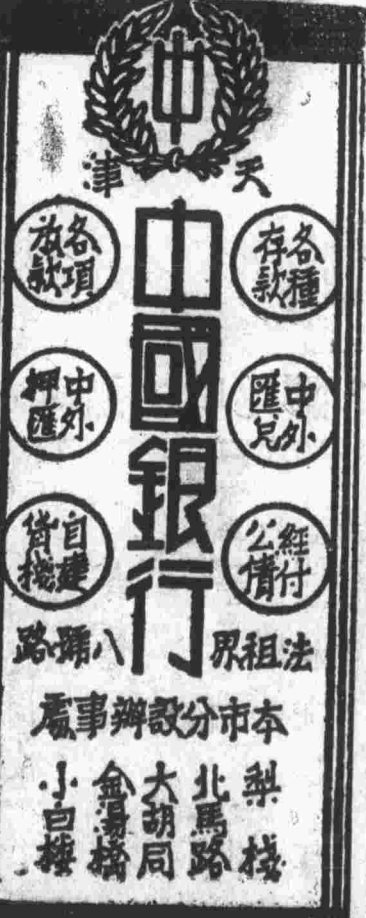 中
天津
中國銀行
各種存款
中外匯兌
經付公債
各項放款
中外押匯
自建貨棧
法租界八號路
本市分設辦事處
梨棧
北馬路
大胡同
金湯橋
小白樓